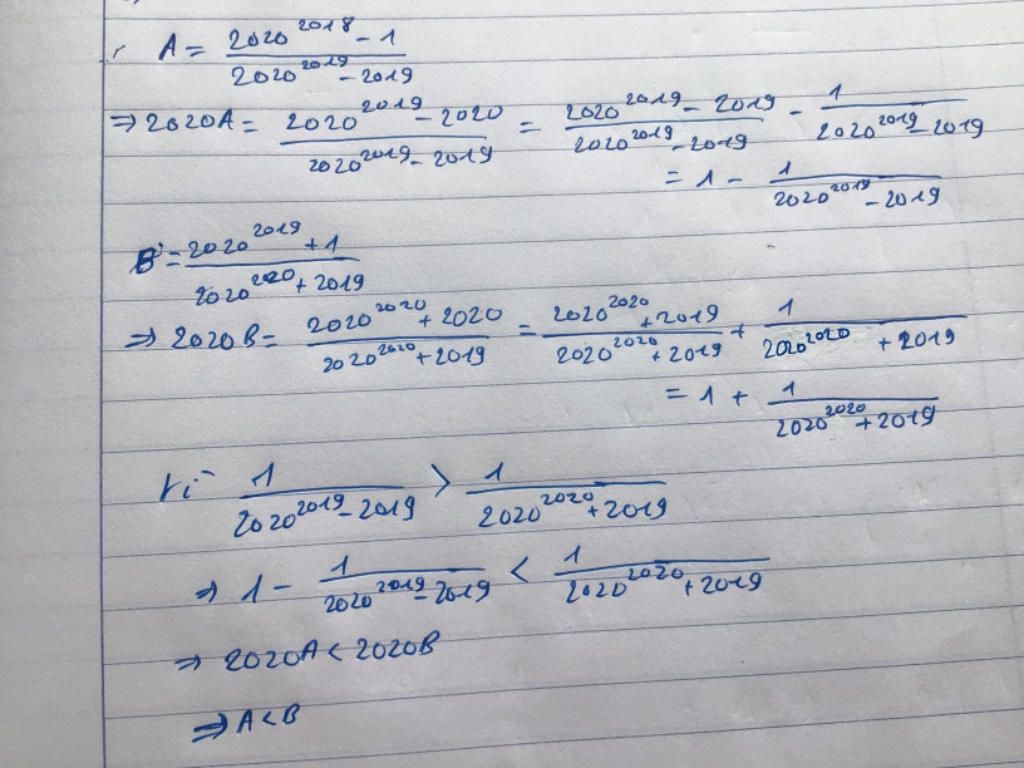 A = \frac{2020^{2018} - 1}{2020^{2019} - 2019}
⇒ 2020A = \frac{2020^{2019} - 2020}{2020^{2019} - 2019} = \frac{2020^{2019} - 2019}{2020^{2019} - 2019} - \frac{1}{2020^{2019} - 2019}
= 1 - \frac{1}{2020^{2019} - 2019}
B = \frac{2020^{2019} + 1}{2020^{2020} + 2019}
⇒ 2020B = \frac{2020^{2020} + 2020}{2020^{2020} + 2019} = \frac{2020^{2020} + 2019}{2020^{2020} + 2019} + \frac{1}{2020^{2020} + 2019}
= 1 + \frac{1}{2020^{2020} + 2019}
Vì \frac{1}{2020^{2019} - 2019} > \frac{1}{2020^{2020} + 2019}
⇒ 1 - \frac{1}{2020^{2019} - 2019} < \frac{1}{2020^{2020} + 2019}
⇒ 2020A < 2020B
⇒ A < B